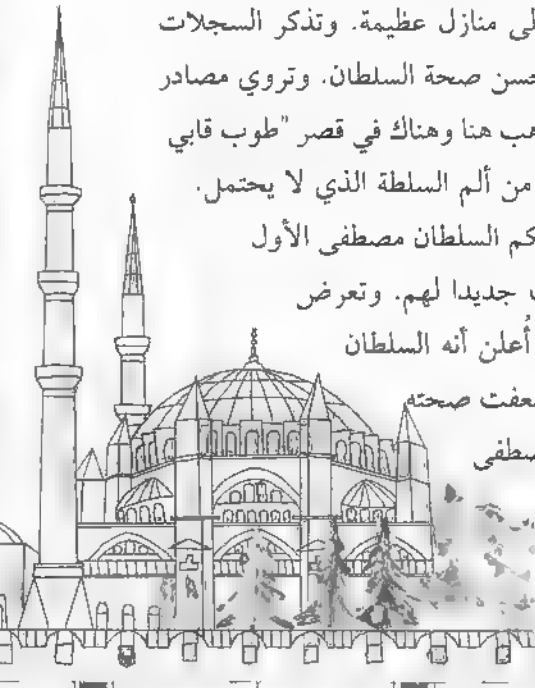 لى منازل عظيمة. وتذكر السجلات
حسن صحة السلطان. وتروي مصادر
هب هنا وهناك في قصر "طوب قابي
من ألم السلطة الذي لا يحتمل.
كم السلطان مصطفى الأول
جديدا لهم. وتعرض
أُعلن أنه السلطان
عفت صحته
صطفى